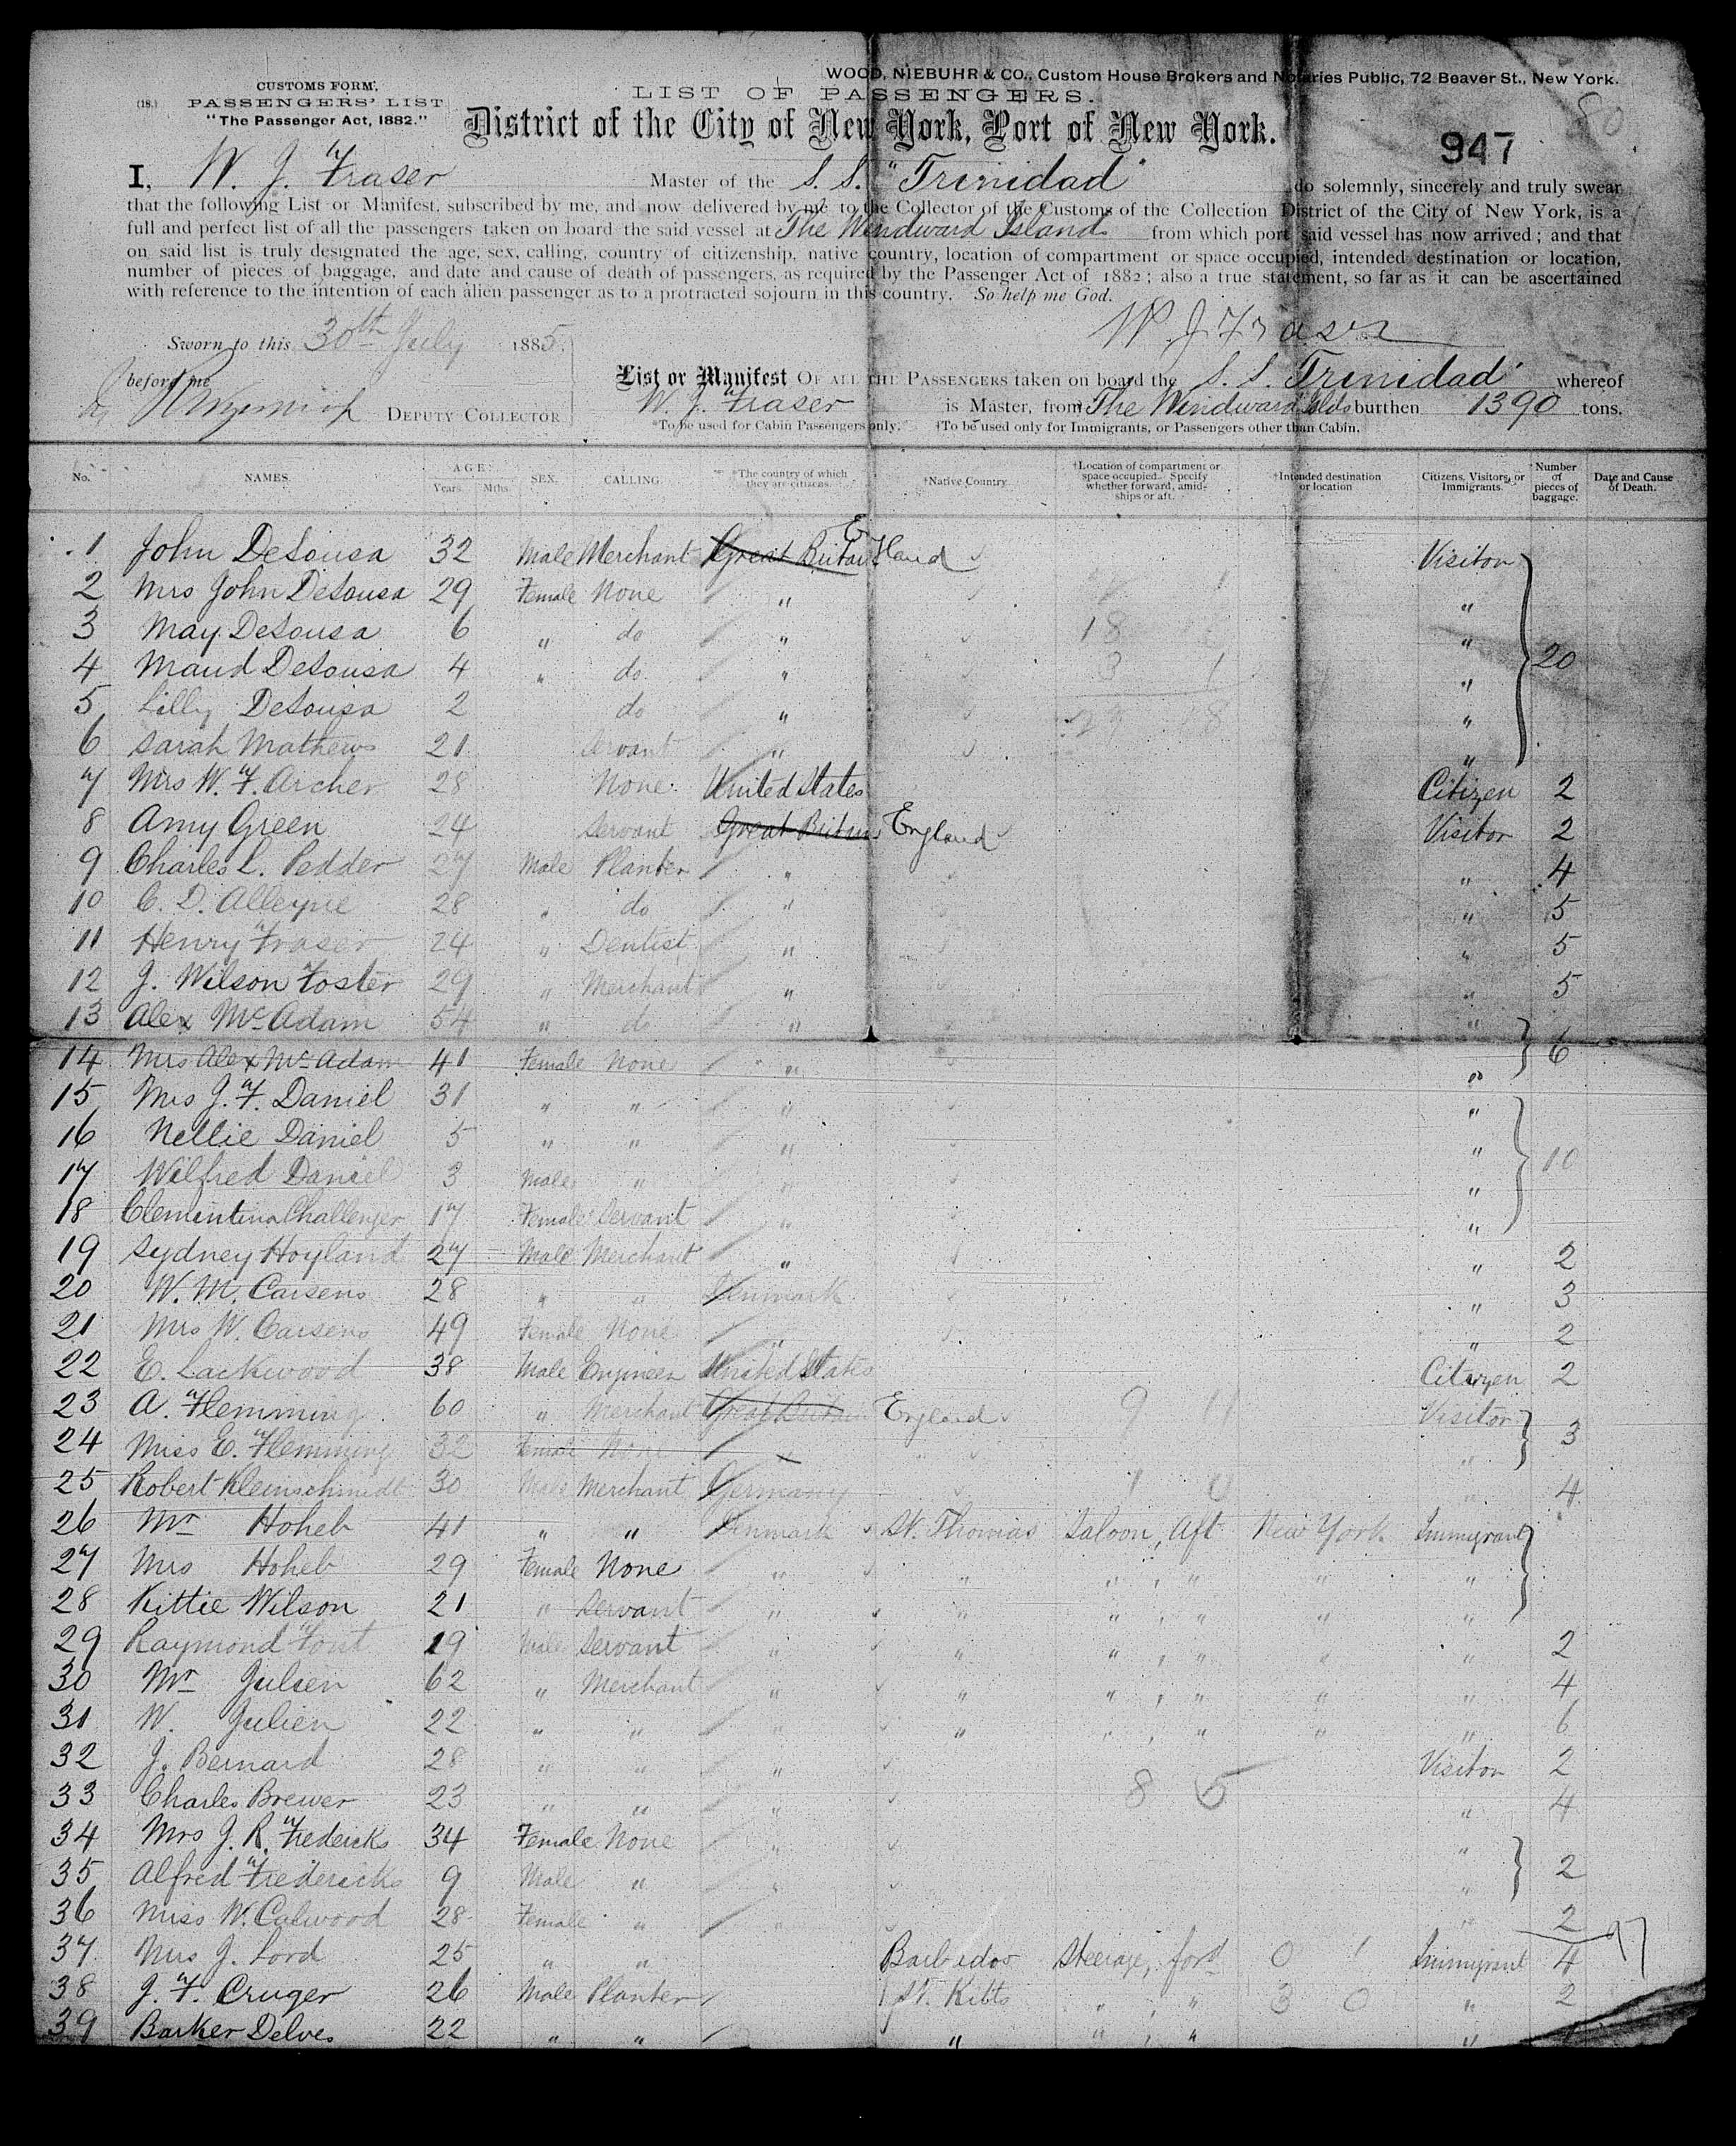 WOOD, NIEBUHR & CO., Custom House Brokers and Notaries Public, 72 Beaver St., New York.
CUSTOMS FORM.
LIST OF PASSENGERS.
(18.) PASSENGERS' LIST
"The Passenger Act, 1882."
District of the City of New York, Port of New York.
80
947
I, W. J. Fraser Master of the S. S. "Trinidad" do solemnly, sincerely and truly swear
that the following List or Manifest, subscribed by me, and now delivered by me to the Collector of the Customs of the Collection District of the City of New York, is a
full and perfect list of all the passengers taken on board the said vessel at The Windward Islands from which port said vessel has now arrived; and that
on said list is truly designated the age, sex, calling, country of citizenship, native country, location of compartment or space occupied, intended destination or location,
number of pieces of baggage, and date and cause of death of passengers, as required by the Passenger Act of 1882; also a true statement, so far as it can be ascertained
with reference to the intention of each alien passenger as to a protracted sojourn in this country. So help me God.
W. J. Fraser
Sworn to this 30th July 1885.
before me
DEPUTY COLLECTOR
List or Manifest OF ALL THE PASSENGERS taken on board the S. S. Trinidad" whereof
W. J. Fraser is Master, from The Windward Islds burthen 1390 tons.
*To be used for Cabin Passengers only. †To be used only for Immigrants, or Passengers other than Cabin.
No. NAMES. AGE. Years. Mths. SEX. CALLING. *The country of which they are citizens. †Native Country. †Location of compartment or space occupied. Specify whether forward, amidships or aft. †Intended destination or location Citizens, Visitors, or Immigrants. Number of pieces of baggage. Date and Cause of Death.
1 John DeSousa 32 Male Merchant Great Britain Eland Visitor
2 Mrs John DeSousa 29 Female None " "
3 May DeSousa 6 " do " 18 "
4 Maud DeSousa 4 " do. " 3 1 " 20
5 Lilly DeSousa 2 do " "
6 Sarah Mathews 21 Servant " "
7 Mrs W. F. Archer 28 None United States Citizen 2
8 Amy Green 24 Servant Great Britain England Visitor 2
9 Charles L. Pedder 27 Male Planter " " 4
10 C. D. Alleyne 28 " do " " 5
11 Henry Fraser 24 " Dentist " " 5
12 J. Wilson Foster 29 " Merchant " " 5
13 Alex McAdam 54 " do " "
14 Mrs Alex McAdam 41 Female None " " 6
15 Mrs J. F. Daniel 31 " " " "
16 Nellie Daniel 5 " " " "
17 Wilfred Daniel 3 Male " " " 10
18 Clementina Challenger 17 Female Servant " "
19 Sydney Hoyland 27 Male Merchant " " 2
20 W. M. Carsens 28 " " Denmark " 3
21 Mrs W. Carsens 49 Female None " " 2
22 E. Lackwood 38 Male Engineer United States Citizen 2
23 A. Flemming 60 " Merchant Great Britain England 9 11 Visitor
24 Miss E. Flemming 32 Female None " 3
25 Robert Kleinschmidt 30 Male Merchant Germany 1 0 " 4
26 Mr Hoheb 41 " " Denmark St. Thomas Saloon, Aft New York Immigrant
27 Mrs Hoheb 29 Female None " " " , " " "
28 Kittie Wilson 21 " Servant " " " , " " "
29 Raymond 19 Male Servant " " " , " " " 2
30 Mr Julien 62 " Merchant " " " , " " " 4
31 W. Julien 22 " " " " " , " " " 6
32 J. Bernard 28 " " " Visitor 2
33 Charles Brewer 23 " " " 8 5 " 4
34 Mrs J. R. Fredericks 34 Female None " "
35 Alfred Fredericks 9 Male " " " 2
36 Miss W. Calwood 28 Female " " " 2
97
37 Mrs J. Lord 25 " " Barbados Steerage, ford 0 1 Immigrant 4
38 J. F. Cruger 26 Male Planter St. Kitts " , " 3 0 " 2
39 Barker Delves 22 " " " " , " "